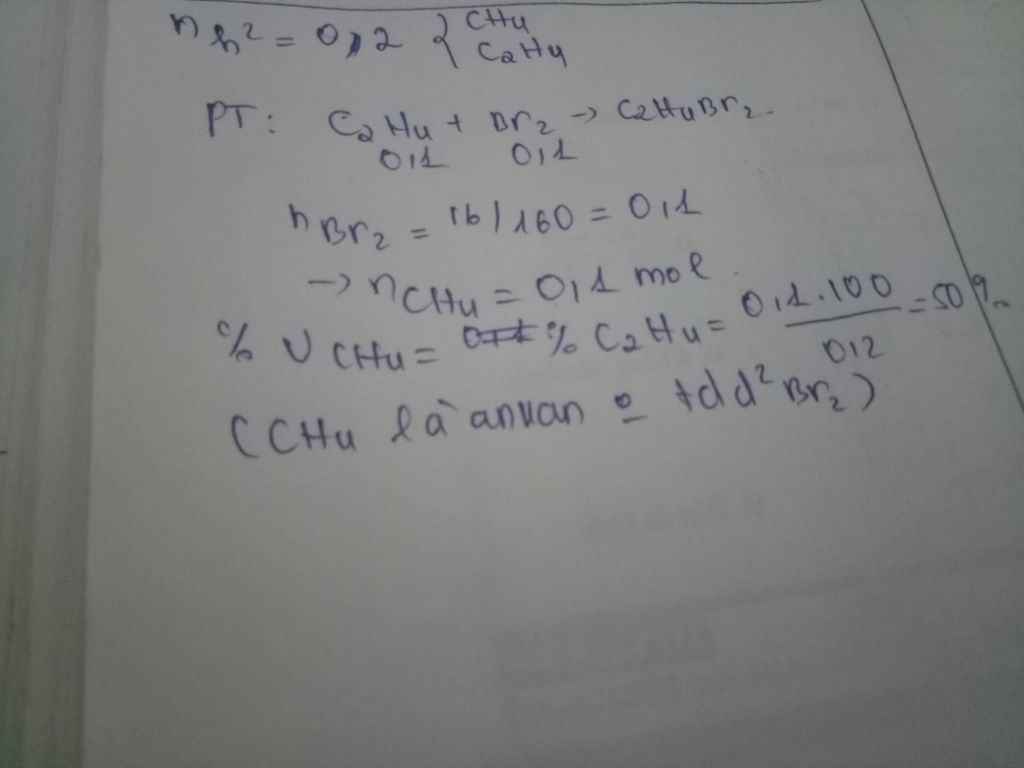 n h² = 0,2 { CH4
C2H4
PT: C2H4 + Br2 → C2H4Br2.
0,1 0,1
n Br2 = 16/160 = 0,1
→ n CH4 = 0,1 mol.
% V CH4 = % C2H4 = 0,1.100 / 0,2 = 50%
(CH4 là ankan o tdd² Br2)